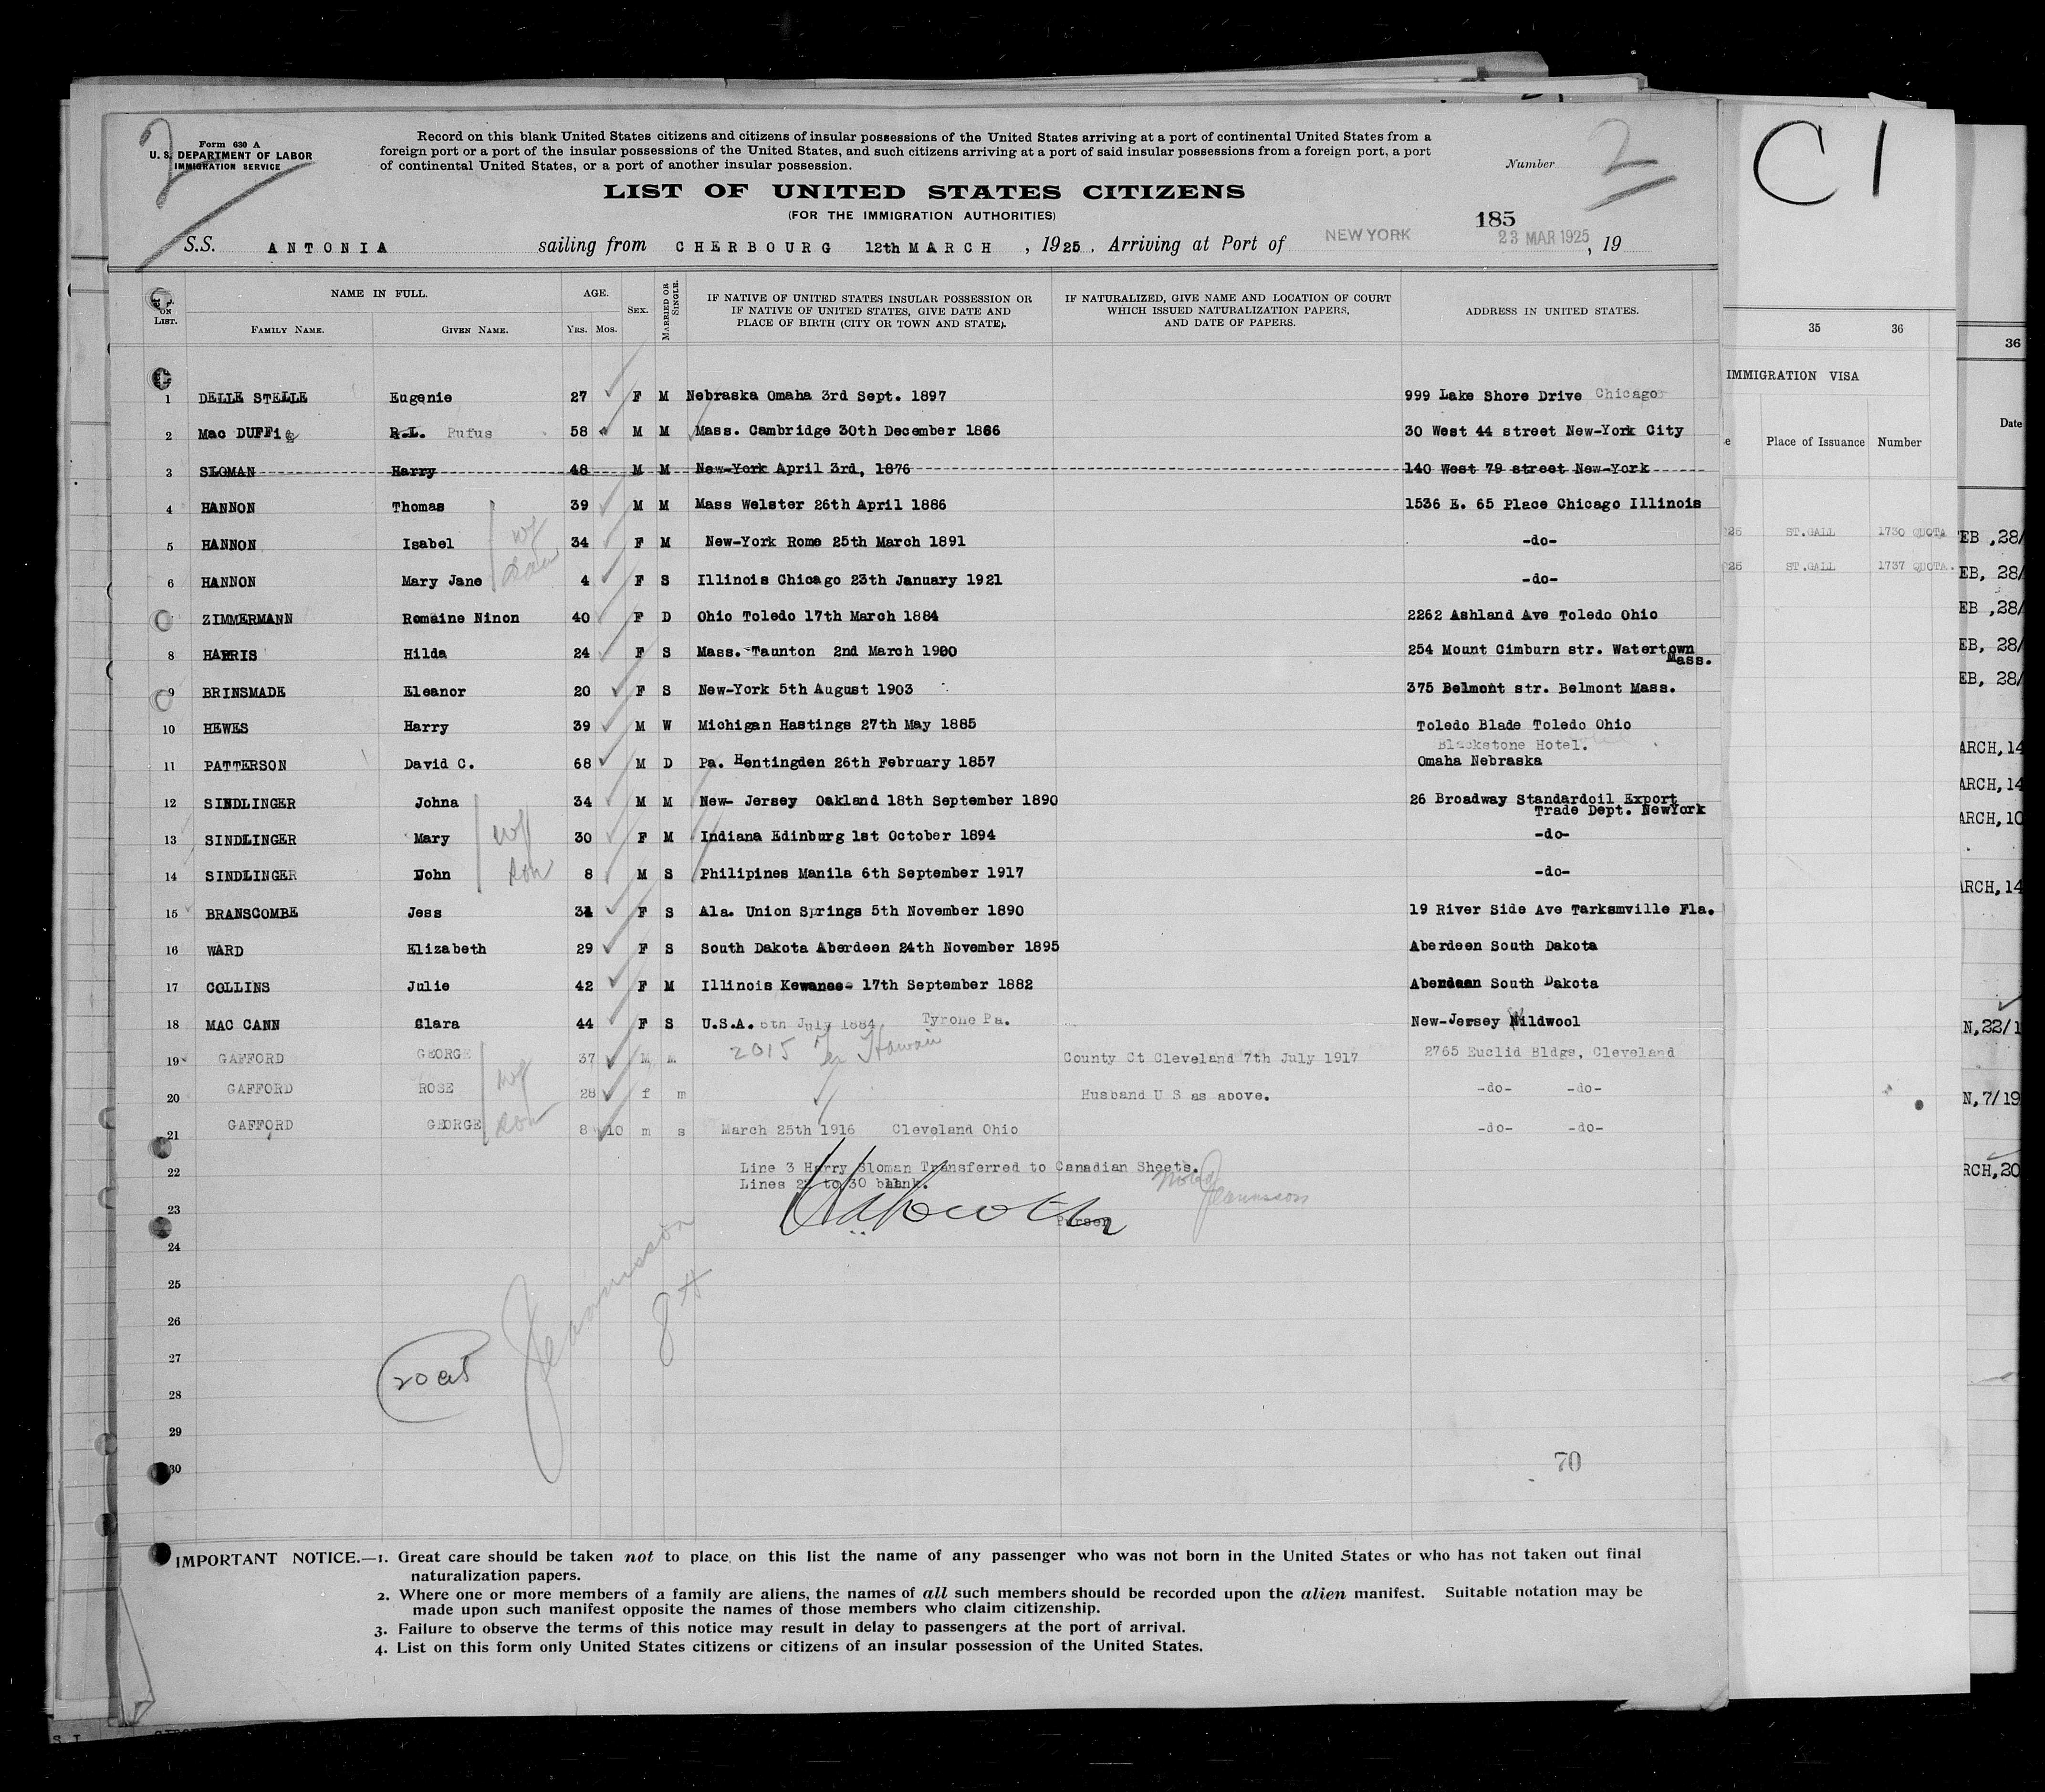 Form 630 A
U. S. DEPARTMENT OF LABOR
IMMIGRATION SERVICE
2
Record on this blank United States citizens and citizens of insular possessions of the United States arriving at a port of continental United States from a
foreign port or a port of the insular possessions of the United States, and such citizens arriving at a port of said insular possessions from a foreign port, a port
of continental United States, or a port of another insular possession.
Number 2
LIST OF UNITED STATES CITIZENS
(FOR THE IMMIGRATION AUTHORITIES)
185
S.S. ANTONIA sailing from CHERBOURG 12th MARCH , 1925 , Arriving at Port of NEW YORK 23 MAR 1925 , 19
ON LIST. NAME IN FULL. FAMILY NAME. GIVEN NAME. AGE. YRS. MOS. SEX. MARRIED OR SINGLE. IF NATIVE OF UNITED STATES INSULAR POSSESSION OR IF NATIVE OF UNITED STATES, GIVE DATE AND PLACE OF BIRTH (CITY OR TOWN AND STATE). IF NATURALIZED, GIVE NAME AND LOCATION OF COURT WHICH ISSUED NATURALIZATION PAPERS, AND DATE OF PAPERS. ADDRESS IN UNITED STATES.
1 DELLE STELLE Eugenie 27 F M Nebraska Omaha 3rd Sept. 1897 999 Lake Shore Drive Chicago
2 Mac DUFFie R.L. Rufus 58 M M Mass. Cambridge 30th December 1866 30 West 44 street New-York City
3 SLOMAN Harry 48 M M New-York April 3rd, 1876 140 West 79 street New-York
4 HANNON Thomas 39 M M Mass Welster 26th April 1886 1536 E. 65 Place Chicago Illinois
wf
5 HANNON Isabel 34 F M New-York Rome 25th March 1891 -do-
6 HANNON Mary Jane 4 F S Illinois Chicago 23th January 1921 -do-
ZIMMERMANN Romaine Ninon 40 F D Ohio Toledo 17th March 1884 2262 Ashland Ave Toledo Ohio
8 HARRIS Hilda 24 F S Mass. Taunton 2nd March 1900 254 Mount Cimburn str. Watertown Mass.
9 BRINSMADE Eleanor 20 F S New-York 5th August 1903 375 Belmont str. Belmont Mass.
10 HEWES Harry 39 M W Michigan Hastings 27th May 1885 Toledo Blade Toledo Ohio
Blackstone Hotel.
11 PATTERSON David C. 68 M D Pa. Hentingden 26th February 1857 Omaha Nebraska
12 SINDLINGER Johna 34 M M New- Jersey Oakland 18th September 1890 26 Broadway Standardoil Export
Trade Dept. NewYork
13 SINDLINGER Mary wf 30 F M Indiana Edinburg 1st October 1894 -do-
14 SINDLINGER John son 8 M S Philipines Manila 6th September 1917 -do-
15 BRANSCOMBE Jess 34 F S Ala. Union Springs 5th November 1890 19 River Side Ave Tarksmville Fla.
16 WARD Elizabeth 29 F S South Dakota Aberdeen 24th November 1895 Aberdeen South Dakota
17 COLLINS Julie 42 F M Illinois Kewanee 17th September 1882 Aberdeen South Dakota
18 MAC CANN Clara 44 F S U.S.A. 6th July 1884 Tyrone Pa. New-Jersey Wildwool
2015 Hawaii
19 GAFFORD GEORGE 37 M m County Ct Cleveland 7th July 1917 2765 Euclid Bldgs, Cleveland
20 GAFFORD ROSE wf 28 f m Husband U S as above. -do- -do-
21 GAFFORD GEORGE son 8 10 m s March 25th 1916 Cleveland Ohio -do- -do-
22 Line 3 Harry Sloman Transferred to Canadian Sheets.
Lines 22 to 30 blank.
23 Purser
24
25
26
27
28
29
30
70
IMPORTANT NOTICE.—1. Great care should be taken not to place on this list the name of any passenger who was not born in the United States or who has not taken out final
naturalization papers.
2. Where one or more members of a family are aliens, the names of all such members should be recorded upon the alien manifest. Suitable notation may be
made upon such manifest opposite the names of those members who claim citizenship.
3. Failure to observe the terms of this notice may result in delay to passengers at the port of arrival.
4. List on this form only United States citizens or citizens of an insular possession of the United States.
C1
35 36
IMMIGRATION VISA
Place of Issuance Number
25 ST.GALL 1730 QUOTA
25 ST.GALL 1737 QUOTA.
36
Date
EB ,28/
EB, 28/
EB ,28/
EB, 28/
EB, 28/
ARCH,14
ARCH,14
ARCH,10
ARCH,14
N,22/1
N,7/19
RCH,20